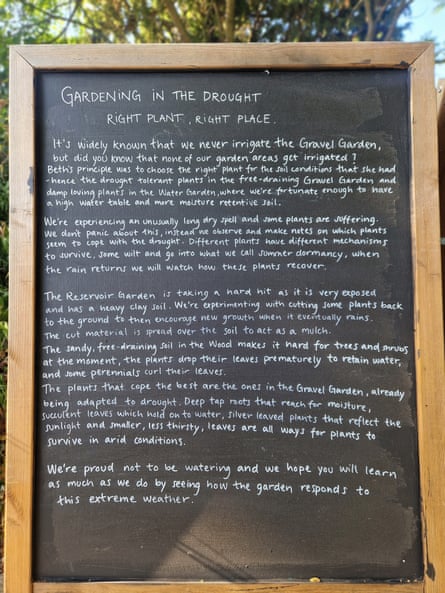 GARDENING IN THE DROUGHT
RIGHT PLANT, RIGHT PLACE.
It's widely known that we never irrigate the Gravel Garden,
but did you know that none of our garden areas get irrigated?
Beth's principle was to choose the right plant for the soil conditions that she had
-hence the drought tolerant plants in the free-draining Gravel Garden and
damp loving plants in the Water Garden, where we're fortunate enough to have
a high water table and more moisture retentive soil.
We're experiencing an unusually long dry spell and some plants are suffering.
We don't panic about this, instead we observe and make notes on which plants
seem to cope with the drought. Different plants have different mechanisms
to survive, some wilt and go into what we call summer dormancy, when
the rain returns we will watch how these plants recover.
The Reservoir Garden is taking a hard hit as it is very exposed
and has a heavy clay soil. We're experimenting with cutting some plants back
to the ground to then encourage new growth when it eventually rains.
The cut material is spread over the soil to act as a mulch.
The sandy, free-draining soil in the Wood makes it hard for trees and shrubs
at the moment, the plants drop their leaves prematurely to retain water,
and some perennials curl their leaves.
The plants that cope the best are the ones in the Gravel Garden, already
being adapted to drought. Deep tap roots that reach for moisture,
succulent leaves which hold on to water, silver leaved plants that reflect the
sunlight and smaller, less thirsty, leaves are all ways for plants to
survive in arid conditions.
We're proud not to be watering and we hope you will learn
as much as we do by seeing how the garden responds to
this extreme weather.